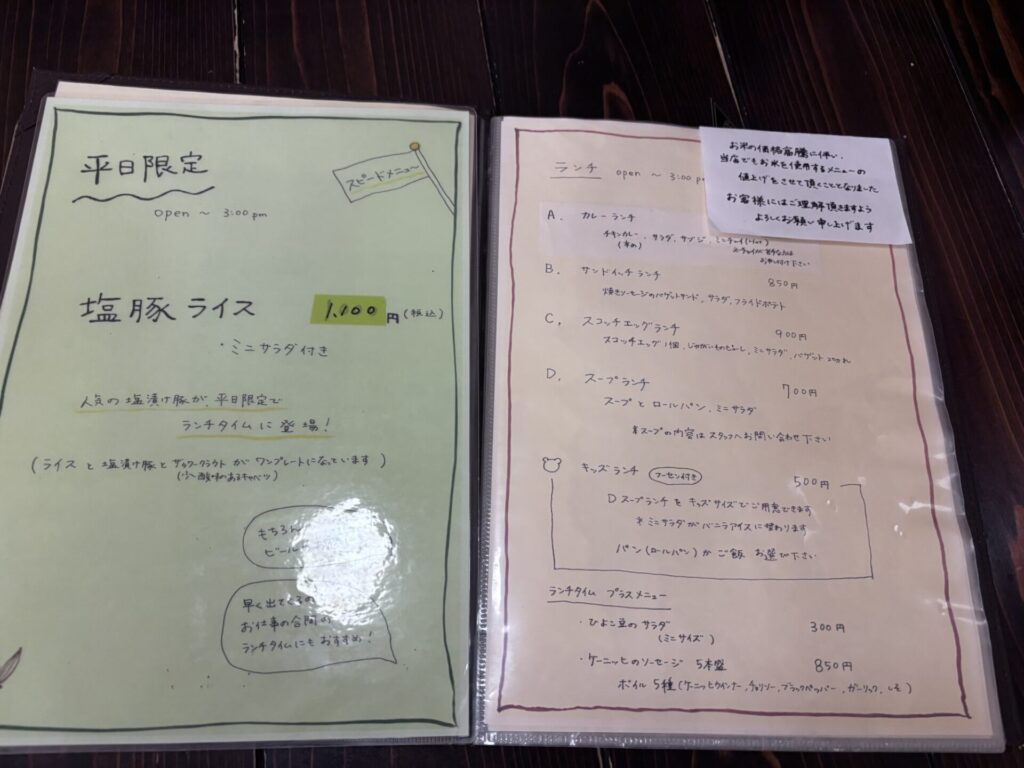 平日限定
スピードメニュー
open ～ 3:00 pm
塩豚ライス 1,100円(税込)
・ミニサラダ付き
人気の塩漬け豚が、平日限定で
ランチタイムに登場!
(ライスと塩漬け豚とザワークラウトがワンプレートになっています)
もちろん
ビール
早く出てくるの
お仕事の合間の
ランチタイムにもおすすめ!
お米の価格高騰に伴い、
当店でもお米を使用するメニューの
値上げをさせて頂くこととなりました
お客様にはご理解頂きますよう
よろしくお願い申し上げます
ランチ open ～ 3:00 p
A. カレーランチ
チキンカレー、サラダ、サブジ、ミニチャイ(Hot)
B. サンドイッチランチ 850円
焼きソーセージのバゲットサンド、サラダ、フライドポテト
C. スコッチエッグランチ 900円
スコッチエッグ1個、じゃがいものピューレ、ミニサラダ、バゲット
D. スープランチ 700円
スープとロールパン、ミニサラダ
*スープの内容はスタッフへお問い合わせ下さい
キッズランチ フーセン付き 500円
Dスープランチをキッズサイズでご用意できます
*ミニサラダがバニラアイスに替わります
パン(ロールパン)かご飯 お選び下さい
ランチタイム プラスメニュー
・ひよこ豆のサラダ 300円
(ミニサイズ)
・ケーニッヒのソーセージ 5本盛 850円
ボイル5種(ケーニッヒウインナー、チョリソー、ブラックペッパー、ガーリック、しそ)